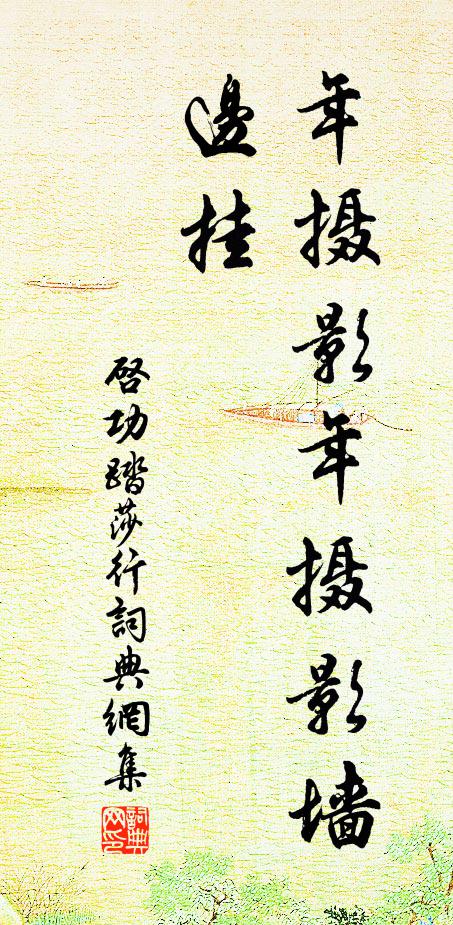 年摄影年摄影墙
邊挂
啓功踏莎行詞典網集
詞典网印